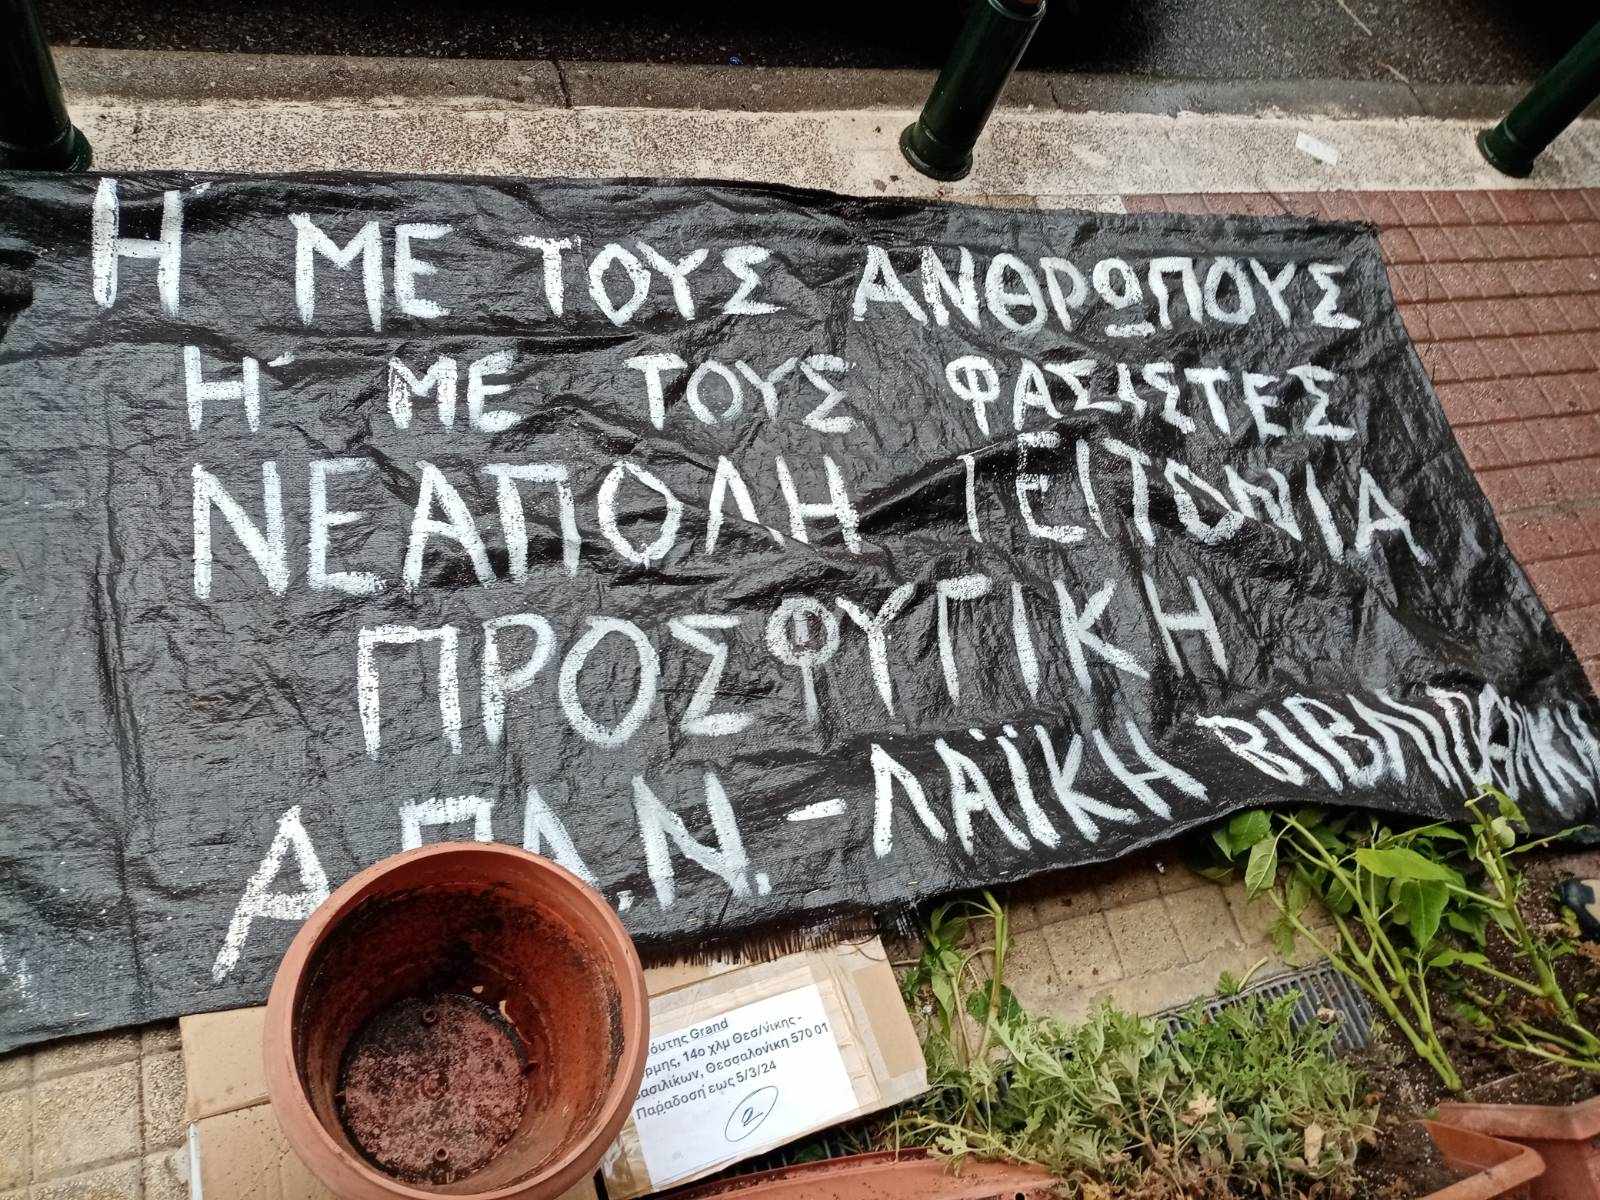 Η΄ ΜΕ ΤΟΥΣ ΑΝΘΡΩΠΟΥΣ
Η΄ ΜΕ ΤΟΥΣ ΦΑΣΙΣΤΕΣ
ΝΕΑΠΟΛΗ ΓΕΙΤΟΝΙΑ
ΠΡΟΣΦΥΓΙΚΗ
Α.Π.Ν. - ΛΑΪΚΗ ΒΙΒΛΙΟΘΗΚΗ
Grand
14ο χλμ Θεσ/νικης -
Βασιλικών, Θεσσαλονίκη 570 01
Παράδοση έως 5/3/24
2